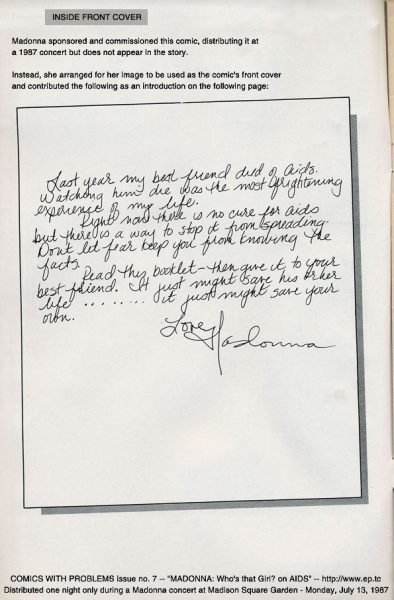 INSIDE FRONT COVER
Madonna sponsored and commissioned this comic, distributing it at
a 1987 concert but does not appear in the story.
Instead, she arranged for her image to be used as the comic's front cover
and contributed the following as an introduction on the following page:
Last year my best friend died of Aids.
Watching him die was the most frightening
experience of my life.
Right now there is no cure for aids
but there is a way to stop it from spreading.
Don't let fear keep you from knowing the
facts.
Read this booklet - then give it to your
best friend. It just might save his or her
life ........ it just might save your
own.
Love, Madonna
COMICS WITH PROBLEMS issue no. 7 -- "MADONNA: Who's that Girl? on AIDS" -- http://www.ep.tc
Distributed one night only during a Madonna concert at Madison Square Garden - Monday, July 13, 1987